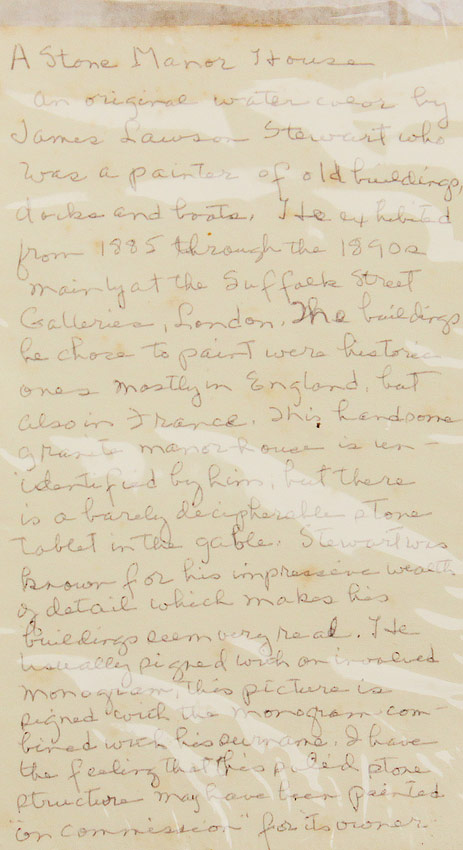 A Stone Manor House
an original water color by
James Lawson Stewart who
was a painter of old buildings,
docks and boats. He exhibited
from 1885 through the 1890s
mainly at the Suffolk Street
Galleries, London. The buildings
he chose to paint were historic
ones mostly in England, but
also in France. This handsome
granite manor house is un-
identified by him, but there
is a barely decipherable stone
tablet in the gable. Stewart was
known for his impressive wealth
of detail which makes his
buildings seem very real. He
usually signed with an involved
monogram, this picture is
signed with the monogram com-
bined with his surname. I have
the feeling that this stone
structure may have been painted
"on commission" for its owner.